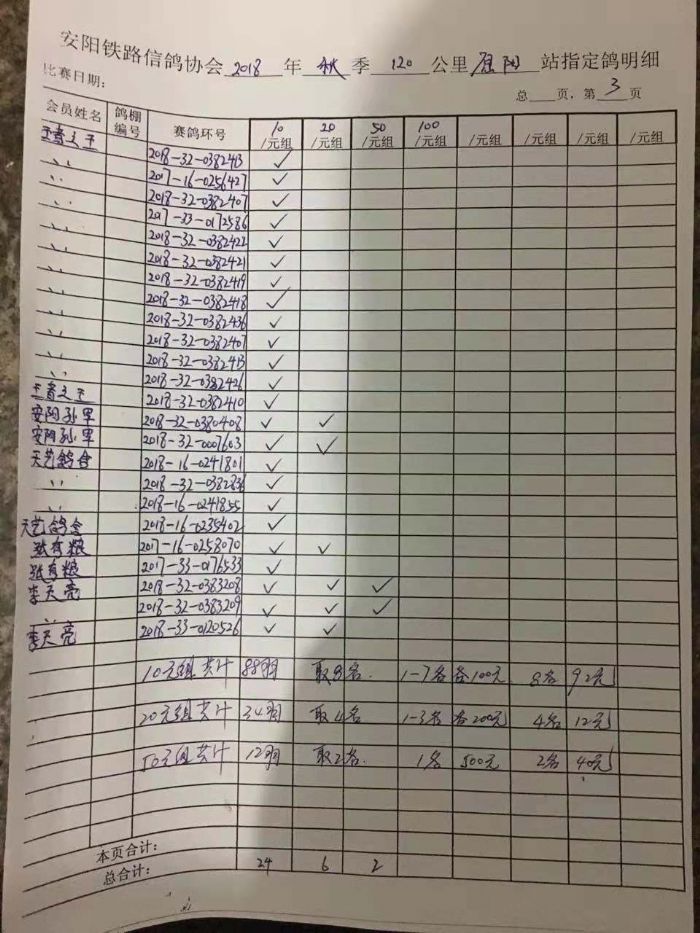 安阳铁路信鸽协会 2018 年 秋 季 120 公里 原阳 站指定鸽明细
比赛日期： 总 页. 第 3 页
会员姓名 鸽棚编号 赛鸽环号 10/元组 20/元组 50/元组 100/元组 /元组 /元组 /元组 /元组
王者之王 2018-32-0382413 ✓
〃 2017-16-0256427 ✓
〃 2018-32-0382407 ✓
〃 2017-33-0172586 ✓
〃 2018-32-0382422 ✓
〃 2018-32-0382421 ✓
〃 2018-32-0382419 ✓
〃 2018-32-0382418 ✓
〃 2018-32-0382436 ✓
〃 2018-32-0382407 ✓
〃 2018-32-0382413 ✓
〃 2018-32-0382426 ✓
王者之王 2018-32-0382410 ✓
安阳孙军 2018-32-0380408 ✓ ✓
安阳孙军 2018-32-0007603 ✓ ✓
天艺鸽舍 2018-16-0241801 ✓
〃 2018-32-0382836 ✓
〃 2018-16-0241855 ✓
天艺鸽舍 2018-16-0235402 ✓
张有粮 2017-16-0258070 ✓ ✓
张有粮 2017-33-0176533 ✓
李天亮 2018-32-0383208 ✓ ✓ ✓
〃 2018-32-0383209 ✓ ✓ ✓
李天亮 2018-33-0120526 ✓ ✓
10元组共计 88羽 取8名 1-7名各100元 8名 92元
20元组共计 34羽 取4名 1-3名各200元 4名 12元
50元组共计 12羽 取2名. 1名 500元 2名 40元
本页合计：
总合计： 24 6 2